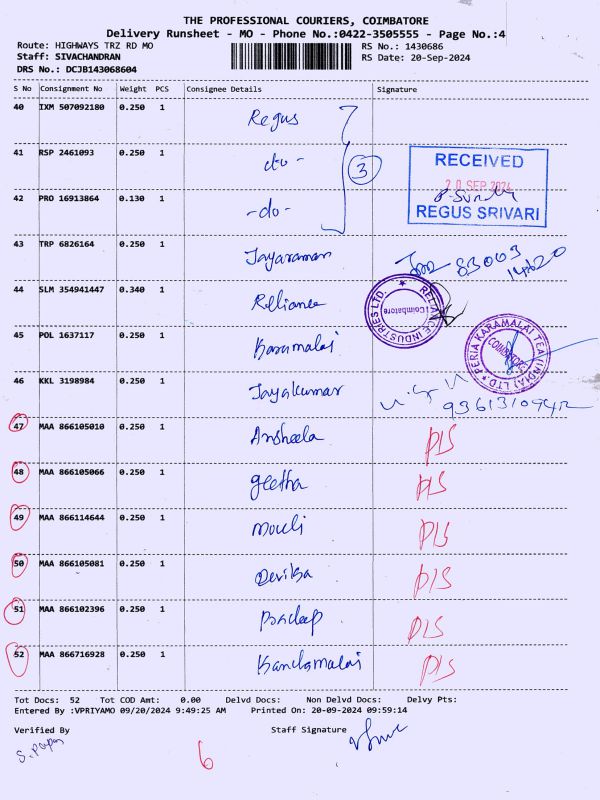 THE PROFESSIONAL COURIERS, COIMBATORE
Delivery Runsheet - MO - Phone No.:0422-3505555 - Page No.:4
Route: HIGHWAYS TRZ RD MO RS No.: 1430686
Staff: SIVACHANDRAN RS Date: 20-Sep-2024
DRS No.: DCJB143068604
S No Consignment No Weight PCS Consignee Details Signature
40 IXM 507092180 0.250 1 Regus
41 RSP 2461093 0.250 1 -do- 3
RECEIVED
20 SEP 2024
REGUS SRIVARI
42 PRO 16913864 0.130 1 -do-
43 TRP 6826164 0.250 1 Jayaraman
44 SLM 354941447 0.340 1 Reliance
RELIANCE INDUSTRIES LTD. Coimbatore
45 POL 1637117 0.250 1 Karamalai
PERIA KARAMALAI TEA (INDIA) LTD COIMBATORE
46 KKL 3198984 0.250 1 Jayakumar
47 MAA 866105010 0.250 1 Ansheela DIS
48 MAA 866105066 0.250 1 geetha DIS
49 MAA 866114644 0.250 1 mouli DIS
50 MAA 866105081 0.250 1 Devika DIS
51 MAA 866102396 0.250 1 Pradeep DIS
52 MAA 866716928 0.250 1 Kandamalai DIS
Tot Docs: 52 Tot COD Amt: 0.00 Delvd Docs: Non Delvd Docs: Delvy Pts:
Entered By :VPRIYAMO 09/20/2024 9:49:25 AM Printed On: 20-09-2024 09:59:14
Verified By Staff Signature
6